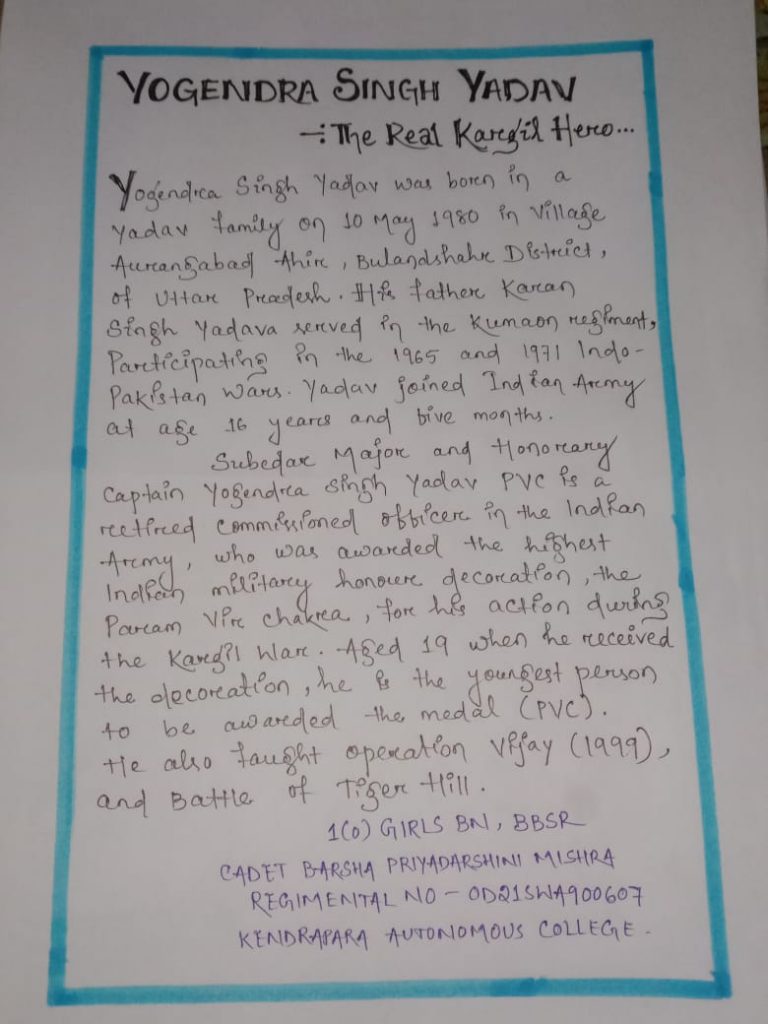 YOGENDRA SINGH YADAV
-: The Real Kargil Hero...
Yogendra Singh Yadav was born in a
Yadav family on 10 May 1980 in Village
Aurangabad Ahir, Bulandshahr District,
of Uttar Pradesh. His father Karan
Singh Yadava served in the Kumaon regiment,
Participating in the 1965 and 1971 Indo-
Pakistan Wars. Yadav joined Indian Army
at age 16 years and five months.
Subedar Major and Honorary
Captain Yogendra Singh Yadav PVC is a
retired commissioned officer in the Indian
Army, who was awarded the highest
Indian military honour decoration, the
Param Vir Chakra, for his action during
the Kargil War. Aged 19 when he received
the decoration, he is the youngest person
to be awarded the medal (PVC).
He also faught operation Vijay (1999),
and Battle of Tiger Hill.
1(O) GIRLS BN, BBSR
CADET BARSHA PRIYADARSHINI MISHRA
REGIMENTAL NO - OD21SWA900607
KENDRAPARA AUTONOMOUS COLLEGE.